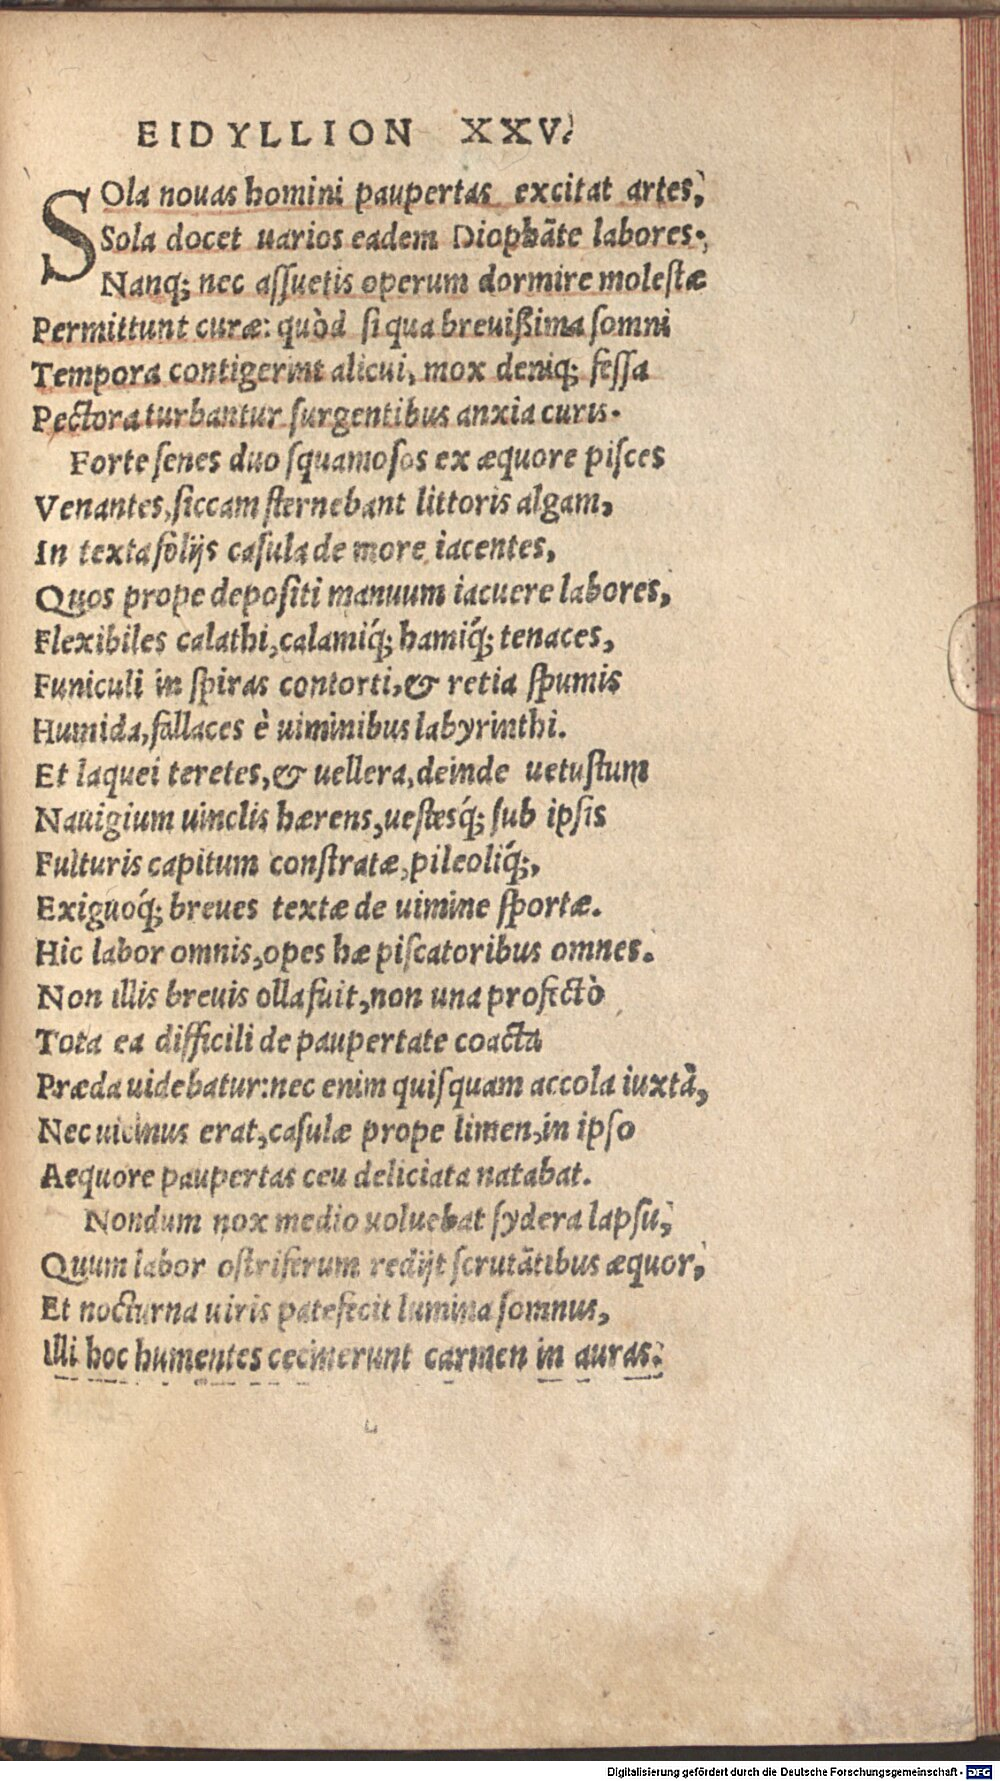 EIDYLLION XXV.
SOla nouas homini paupertas excitat artes,
Sola docet uarios eadem Diophāte labores.
Nanq; nec assuetis operum dormire molestæ
Permittunt curæ: quòd si qua breuißima somni
Tempora contigerint alicui, mox deniq; fessa
Pectora turbantur surgentibus anxia curis.
Forte senes duo squamosos ex æquore pisces
Venantes, siccam sternebant littoris algam,
In texta folijs casula de more iacentes,
Quos prope depositi manuum iacuere labores,
Flexibiles calathi, calamiq́; hamiq́; tenaces,
Funiculi in spiras contorti, & retia spumis
Humida, fallaces è uiminibus labyrinthi.
Et laquei teretes, & uellera, deinde uetustum
Nauigium uinclis hærens, uestesq́; sub ipsis
Fulturis capitum constratæ, pileoliq́;,
Exiguoq́; breues textæ de uimine sportæ.
Hic labor omnis, opes hæ piscatoribus omnes.
Non illis breuis olla fuit, non una profectò
Tota ea difficili de paupertate coacta
Præda uidebatur: nec enim quisquam accola iuxtà,
Nec uicinus erat, casulæ prope limen, in ipso
Aequore paupertas ceu deliciata natabat.
Nondum nox medio uoluebat sydera lapsu,
Quum labor ostriferum redijt scrutātibus æquor,
Et nocturna uiris patefecit lumina somnus,
Illi hoc humentes cecinerunt carmen in auras.
Digitalisierung gefördert durch die Deutsche Forschungsgemeinschaft - DFG